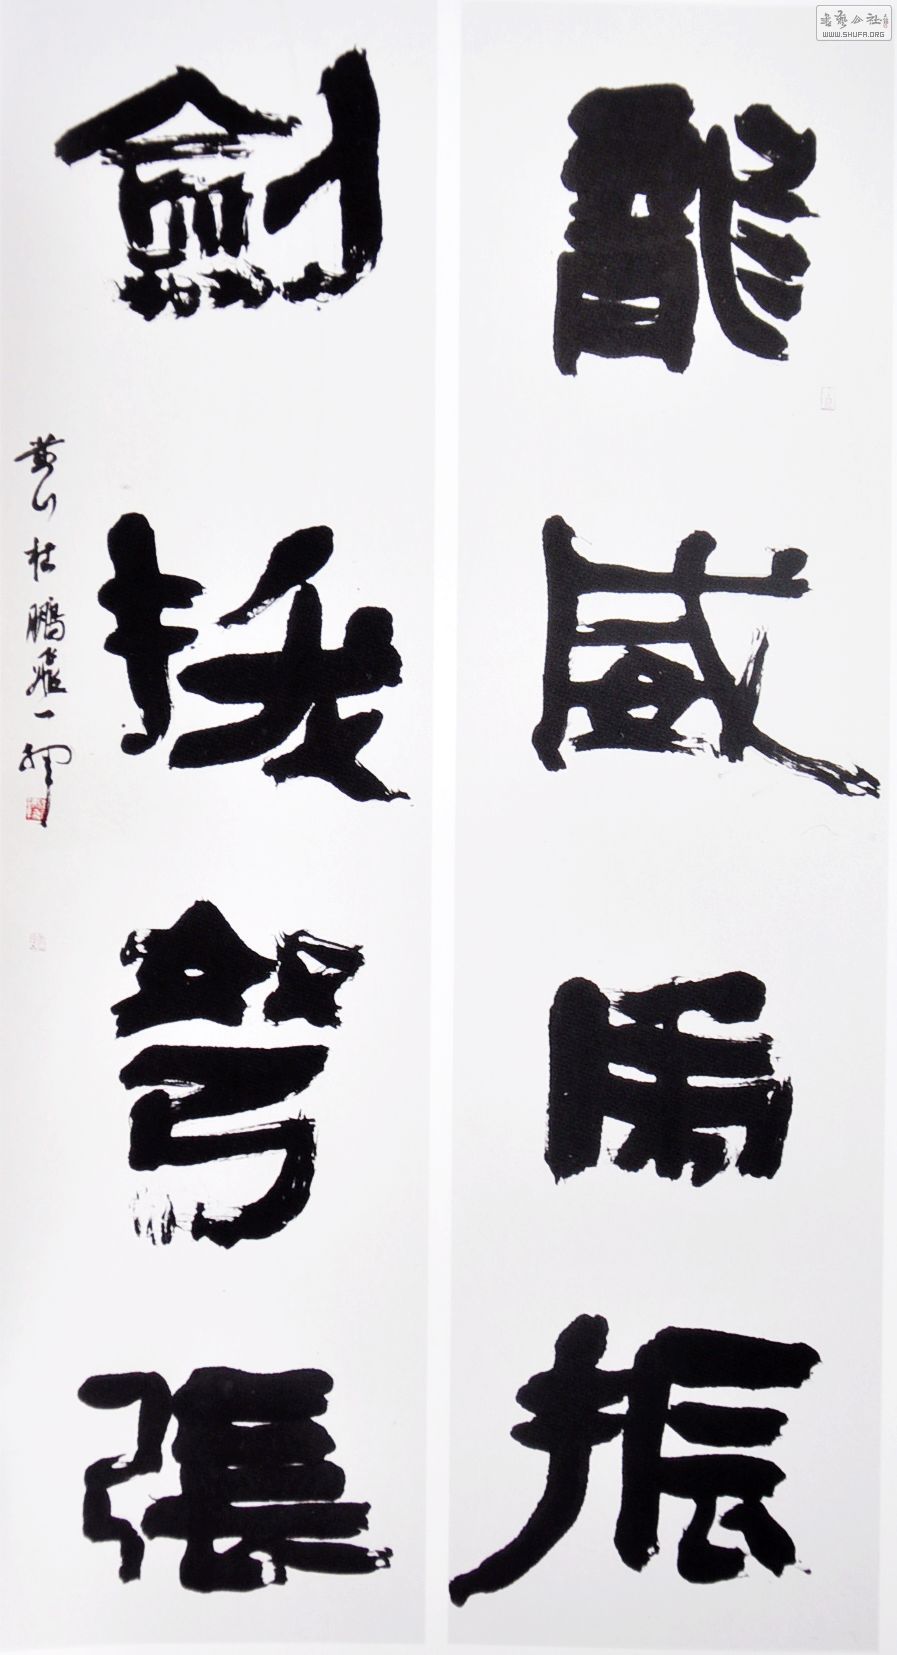 龍威虎振
劍拔弩張
黄山杜鵬飛一揮
書藝公社
WWW.SHUFA.ORG